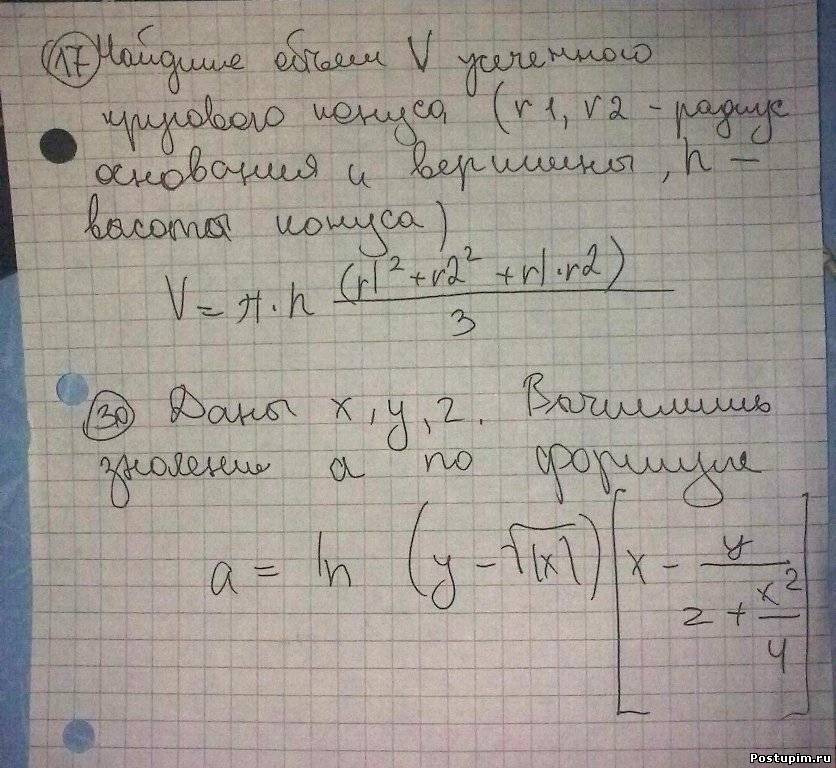 17 Найдите объем V усеченного
кругового конуса (r1, r2 - радиус
основания и вершины, h -
высота конуса)
V = π · h (r1² + r2² + r1 · r2) / 3
30 Даны x, y, z. Вычислить
значение a по формуле
a = ln (y - √|x|) [x - y / (z + x² / 4)]
Postupim.ru